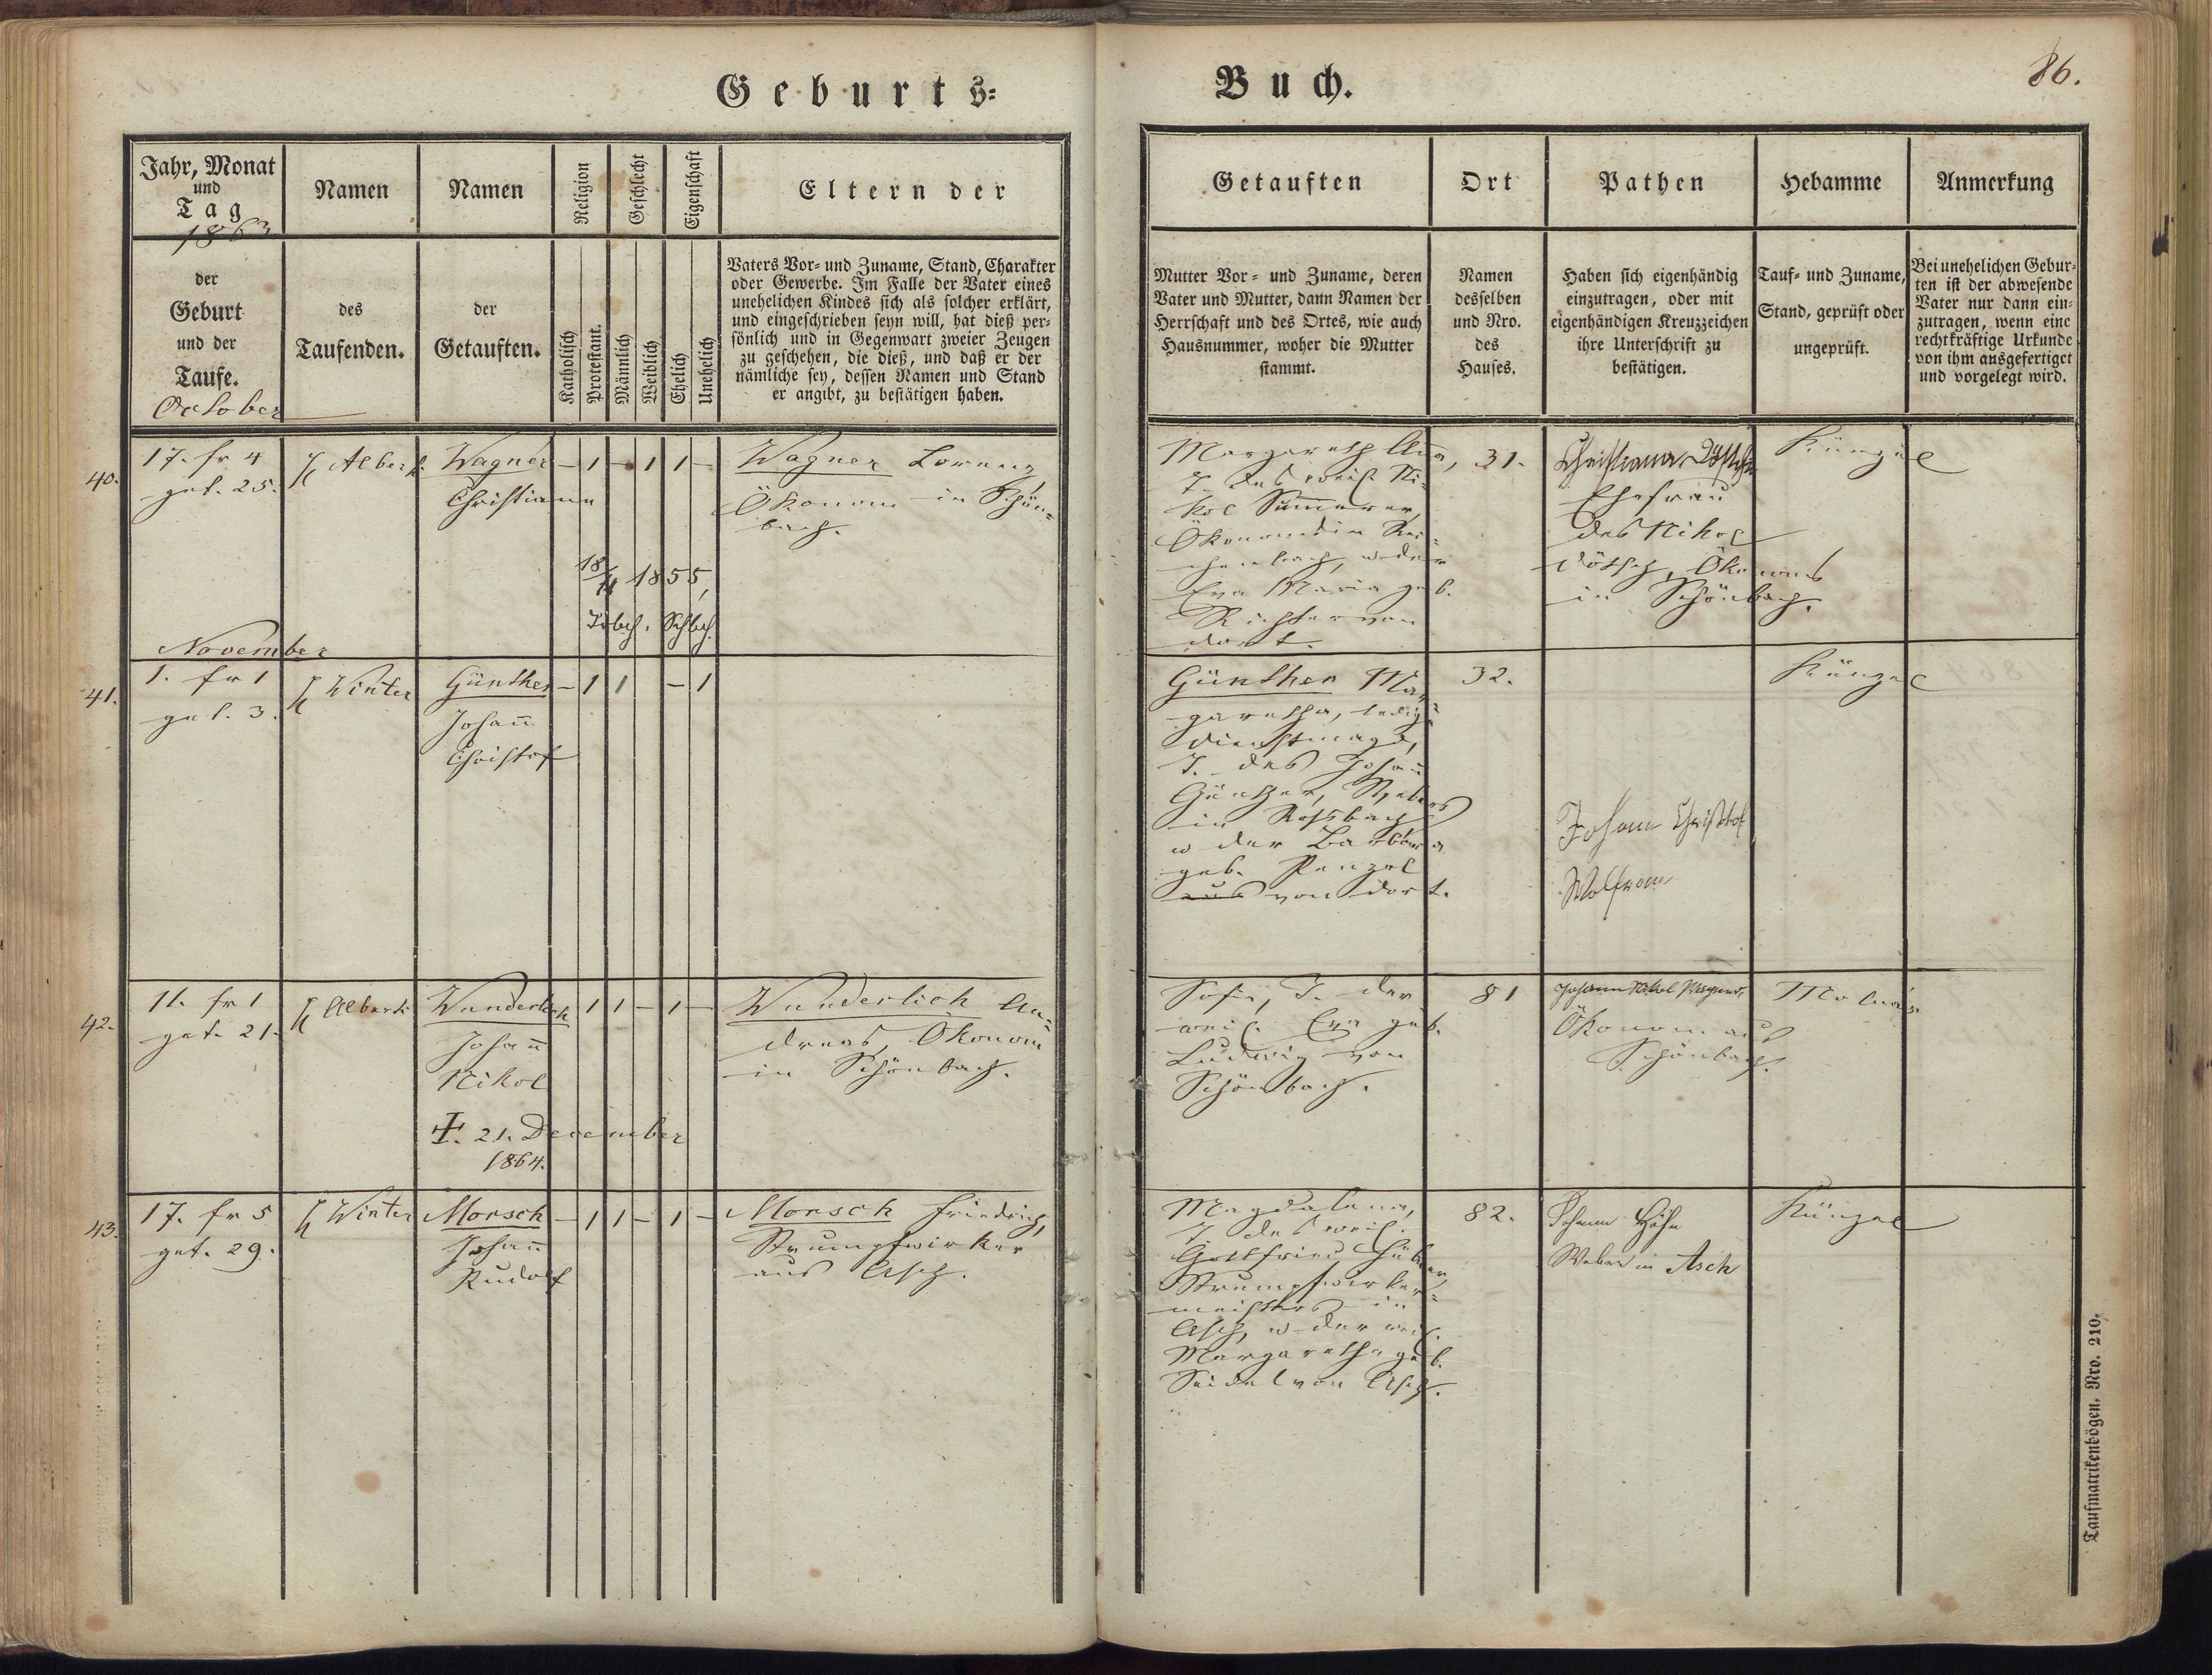 Geburts=
Buch.
86.
Jahr, Monat
und
Tag
1863
der
Geburt
und der
Taufe.
October
Namen
des
Taufenden.
Namen
der
Getauften.
Religion
Katholisch
Protestant.
Geschlecht
Männlich
Weiblich
Eigenschaft
Ehelich
Unehelich
Eltern der
Vaters Vor= und Zuname, Stand, Charakter
oder Gewerbe. Im Falle der Vater eines
unehelichen Kindes sich als solcher erklärt,
und eingeschrieben seyn will, hat dieß per=
sönlich und in Gegenwart zweier Zeugen
zu geschehen, die dieß, und daß er der
nämliche sey, dessen Namen und Stand
er angibt, zu bestätigen haben.
Getauften
Mutter Vor= und Zuname, deren
Vater und Mutter, dann Namen der
Herrschaft und des Ortes, wie auch
Hausnummer, woher die Mutter
stammt.
Ort
Namen
desselben
und Nro.
des
Hauses.
Pathen
Haben sich eigenhändig
einzutragen, oder mit
eigenhändigen Kreuzzeichen
ihre Unterschrift zu
bestätigen.
Hebamme
Tauf= und Zuname,
Stand, geprüft oder
ungeprüft.
Anmerkung
Bei unehelichen Gebur=
ten ist der abwesende
Vater nur dann ein=
zutragen, wenn eine
rechtkräftige Urkunde
von ihm ausgefertiget
und vorgelegt wird.
40.
17. fr 4
get. 25.
Alberti
Wagner
Christiana
– 1 – 1 1 –
18/11 1855,
Schbch.
Wagner Lorenz,
Ökonom in Schön=
bach.
Margareth Anna,
T. des weil. Ni=
kol Summerer,
Ökonom in Rei=
chenbach, u der
Eva Maria geb.
Richter von
dort.
31.
Christiana
Ehefrau
des Nikol
Ökonoms
in Schönbach.
Künzel
November
41.
1. fr 1
get. 3.
Winter
Günther
Johann
Christof
– 1 1 – 1
Günther Mar=
garetha, ledige
Dienstmagd,
T. des Johann
Günther, Webers
in Roßbach
u der Barbara
geb. Penzel
aus von dort.
32.
Johann Christof
Wolfram
Künzel
42.
11. fr 1
get. 21.
Alberti
Wunderlich
Johann
Nikol
1 1 – 1 –
†. 21. December
1864.
Wunderlich An=
dreas, Ökonom
in Schönbach.
Sofia, T. der
weil. Eva geb.
Ludwig von
Schönbach.
81
Johann Nikol Wagner,
Ökonom aus
Schönbach.
43.
17. fr 5
get. 29.
Winter
Morsch
Johann
Rudolf
– 1 1 – 1 –
Morsch Friedrich,
Strumpfwirker
aus Asch.
Magdalena,
T. des weil.
Gottfried Hübner,
Strumpfwirker=
meisters in
Asch, u der weil.
Margaretha geb.
Seidel von Asch.
82.
Johann Höhn
Weber in Asch
Künzel
Taufmatrikenbögen. Nro. 210.